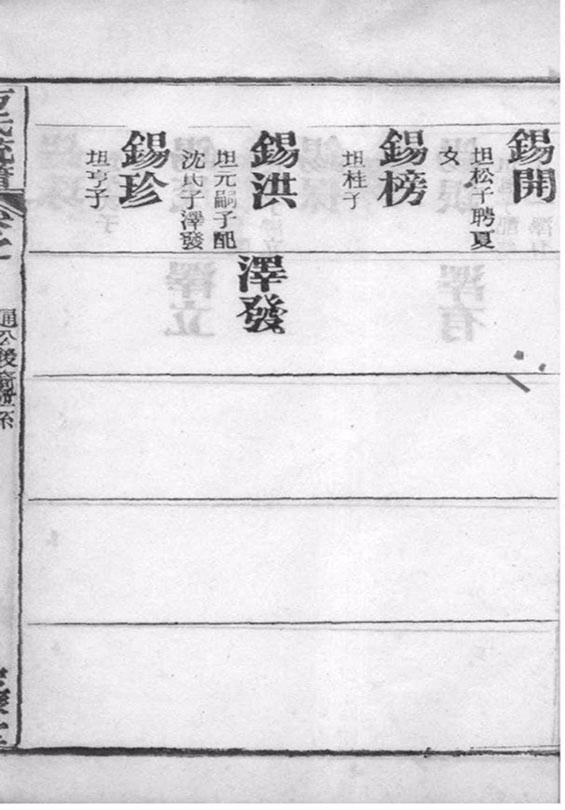 錫開
坦松子聘夏
女
錫榜
坦桂子
錫洪
坦元嗣子配
沈氏子澤發
澤發
錫珍
坦亨子